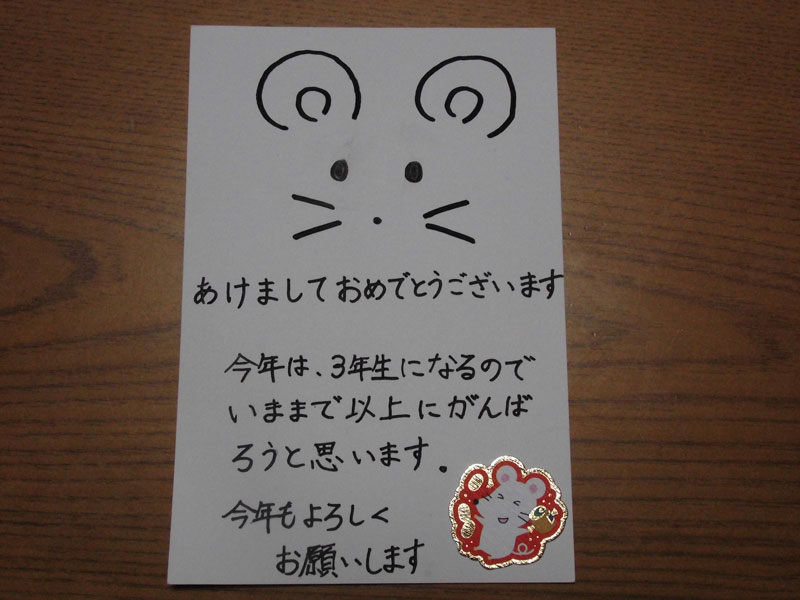 あけましておめでとうございます
今年は、3年生になるので
いままで以上にがんば
ろうと思います。
今年もよろしく
お願いします